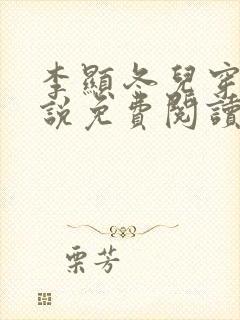 李顯冬兒穿
說免費閱讀
栗芳